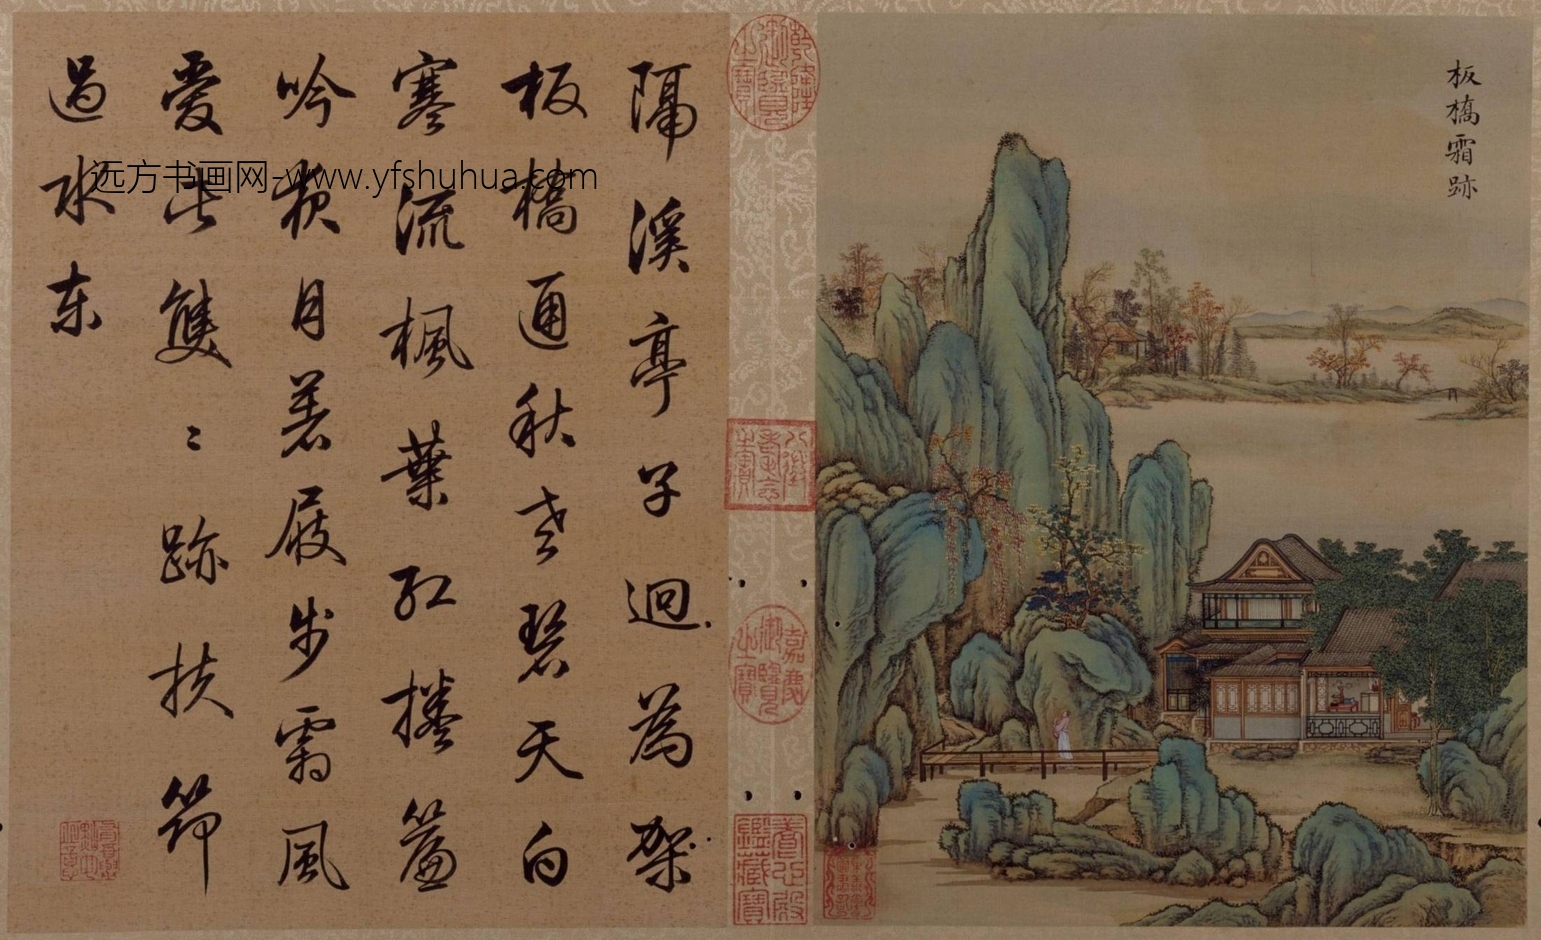 板橋霜跡
乾隆御覽之寶
八徵耄念之寶
嘉慶御覽之寶
養心殿鑑藏寶
隔溪亭子迥為架
板橋通秋老碧天白
寒流楓葉紅捲簾
吟夜月著屐步霜風
愛此雙〻跡扶筇
過水東
远方书画网-www.yfshuhua.com